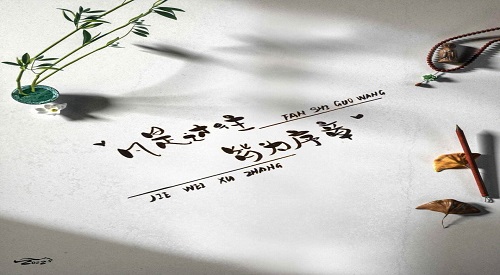 凡是过往
FAN SHI GUO WANG
皆为序章
JIE WEI XU ZHANG